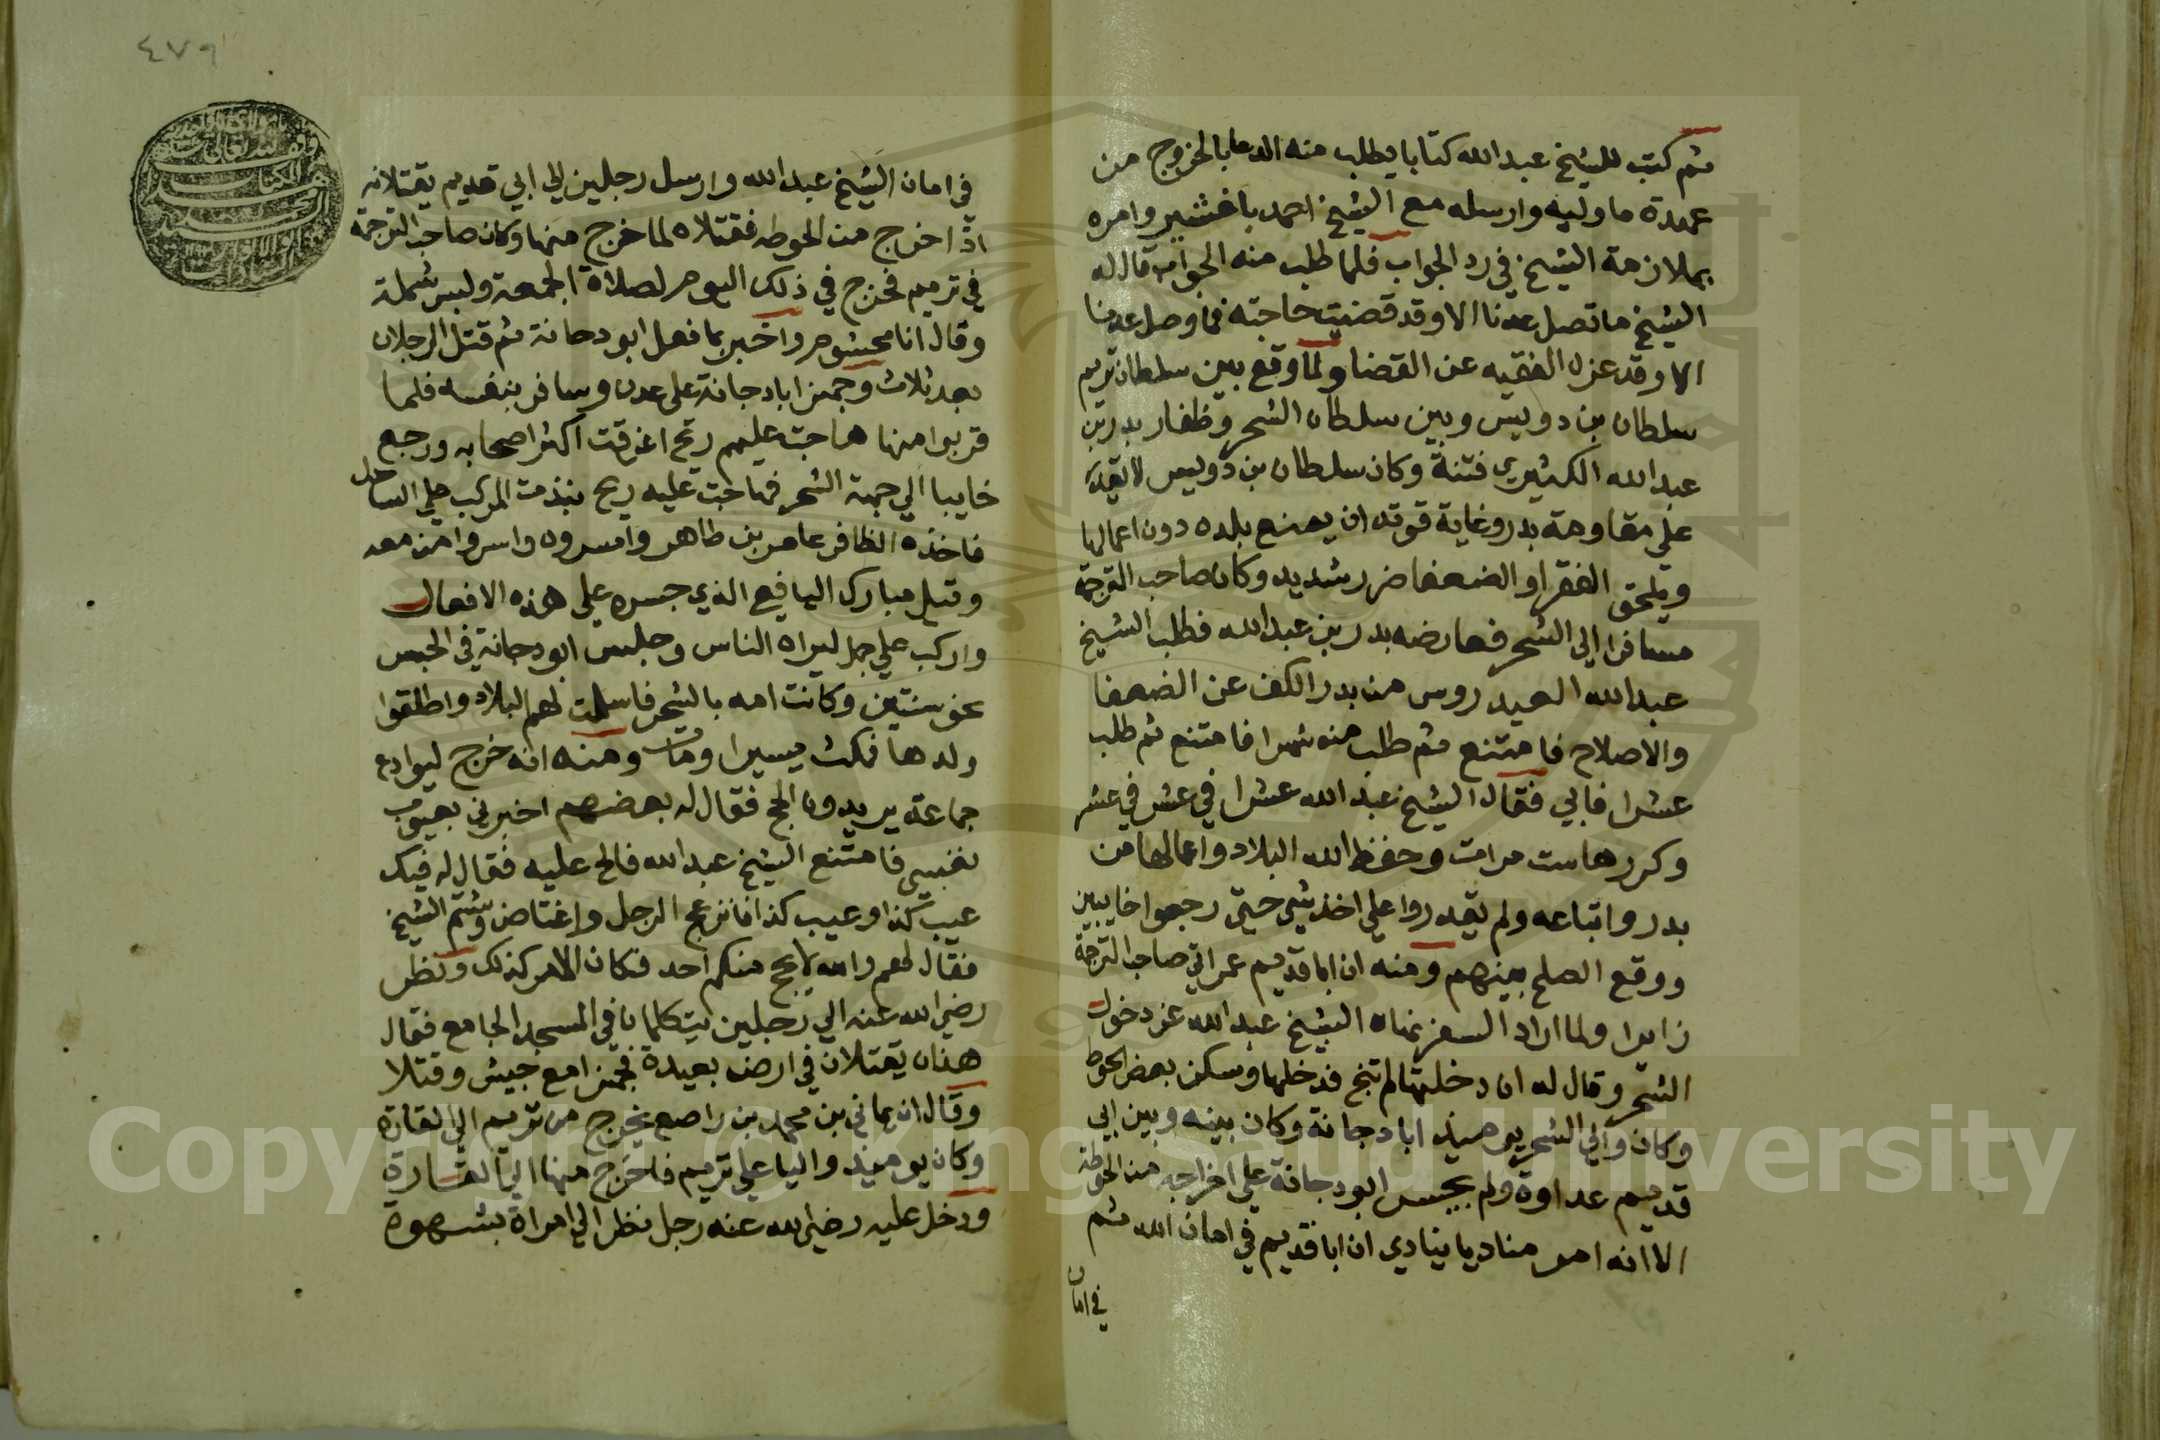 ثم كتب للشيخ عبد الله كتابا يطلب منه الدعا بالخروج من
عهدة ما وليه وارسله مع الشيخ احمد باغشير وامره
بملازمة الشيخ في رد الجواب فلما طلب منه الجواب قال له
الشيخ ما تصل عدنا الا وقد قضيت حاجته فما وصل عدنا
الا وقد عزل الفقيه عن القضا ولما وقع بين سلطان تريم
سلطان بن دويس وبين سلطان الشحر وظفار بدر بن
عبد الله الكثيري فتنة وكان سلطان بن دويس لا يقدر
علي مقاومة بدر وغاية قوته ان يمنع بلده دون اعمالها
ويلحق الفقرا والضعفا ضرر شديد وكان صاحب الترجمة
مسافرا الي الشحر فعارضه بدر بن عبد الله فطلب الشيخ
عبد الله العيدروس من بدر الكف عن الضعفا
والاصلاح فامتنع ثم طلب منه شهرا فامتنع ثم طلب
عشرا فابي فقال الشيخ عبد الله عشرا في عشر في عشر
وكررها ست مرات وحفظ الله البلاد واعمالها من
بدر واتباعه ولم يقدروا علي اخذ شي حتي رجعوا خايبين
ووقع الصلح بينهم ومنه ان ابا قديم عمر اتي صاحب الترجمة
زايرا ولما اراد السفر نهاه الشيخ عبد الله عن دخول
الشحر وقال له ان دخلتها لم تنج فدخلها وسكن بعض الحوط
وكان والي الشحر يوميذ ابا دجانة وكان بينه وبين ابي
قديم عداوة ولم يجسر ابو دجانة علي اخراجه من الحوطة
الا انه امر مناديا ينادي ان ابا قديم في امان الله ثم
في امان
٤٧٩
في امان الشيخ عبد الله وارسل رجلين الي ابي قديم يقتلانه
اذا خرج من الحوطه فقتلاه لما خرج منها وكان صاحب الترجمة
في تريم فخرج في ذلك اليوم لصلاة الجمعة ولبس شملة
وقال انا محشوم واخبر بما فعل ابو دجانة ثم قتل الرجلان
بعد ثلاث وجهز ابا دجانة علي عدن وسافر بنفسه فلما
قربوا منها هاجت عليهم ريح اغرقت اكثر اصحابه ورجع
خايبا الي جهة الشحر فهاجت عليه ريح نبذت المركب علي الساحل
فاخذه الظافر عامر بن طاهر واسروه واسروا من معه
وقتل مبارك اليافعي الذي جسره علي هذه الافعال
واركب علي جمل ليراه الناس وجلس ابو دجانة في الحبس
نحو سنتين وكانت امه بالشحر فاسلمت لهم البلاد واطلقوا
ولدها فمكث يسيرا ومات ومنه انه خرج ليوادع
جماعة يريدون الحج فقال له بعضهم اخبرني بعيوب
نفسي فامتنع الشيخ عبد الله فالح عليه فقال له فيك
عيب كذا وعيب كذا فانزعج الرجل واغتاض وشتم الشيخ
فقال لهم والله لا يحج منكم احد فكان الامر كذلك ونظر
رضي الله عنه الي رجلين يتكلمان في المسجد الجامع فقال
هذان يقتلان في ارض بعيدة فجهزا مع جيش وقتلا
وقال ان يماني بن محمد بن راصع يخرج من تريم الي القارة
وكان يوميذ واليا علي تريم فاخرج منها الي القارة
ودخل عليه رضي الله عنه رجل نظر الي امراة بشهوة